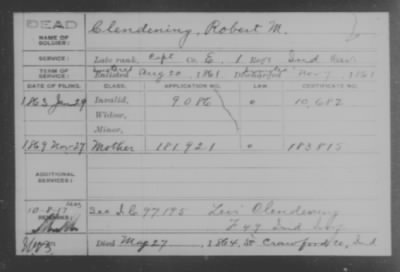 DEAD
NAME OF SOLDIER: Clendening, Robert M.
SERVICE: Late rank, Capt Co. E, 1 Reg't Ind Cav
TERM OF SERVICE: Enlisted Aug 20, 1861 Discharged Nov 7, 1861
DATE OF FILING. CLASS. APPLICATION NO. LAW CERTIFICATE NO.
1863 Jan 29 Invalid, 9086 10,682
Widow,
Minor,
1869 Nov 27 Mother 181921 183815
ADDITIONAL SERVICES:
See I.C. 97195 Levi Clendening
F 49 Ind
Died May 27, 1864, at Crawford Co, Ind